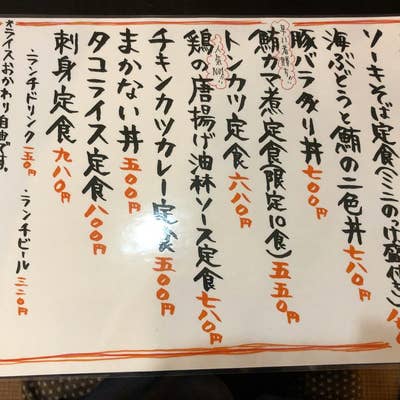 ソーキそば定食(ミニの丼盛付き)
海ぶどうと鮪の二色丼 七八〇円
豚バラ炙り丼 七〇〇円
早い者勝ち!!
鮪カマ煮定食(限定10食) 五五〇円
トンカツ定食 六八〇円
人気NO1!!
鶏の唐揚げ油林ソース定食 七八〇円
チキンカツカレー定食 五五〇円
まかない丼 五〇〇円
タコライス定食 八〇〇円
刺身定食 九八〇円
・ランチドリンク 一五〇円 ・ランチビール 三二〇円
ライスおかわり自由です。